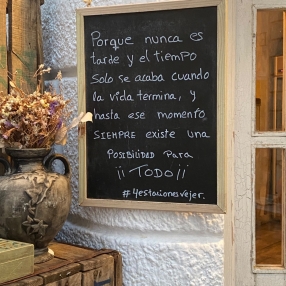 Porque nunca es
tarde y el tiempo
Solo se acaba cuando
la vida termina, y
hasta ese momento
SIEMPRE existe una
POSIBILIDAD Para
¡¡ TODO ¡¡
#4estacionesvejer.